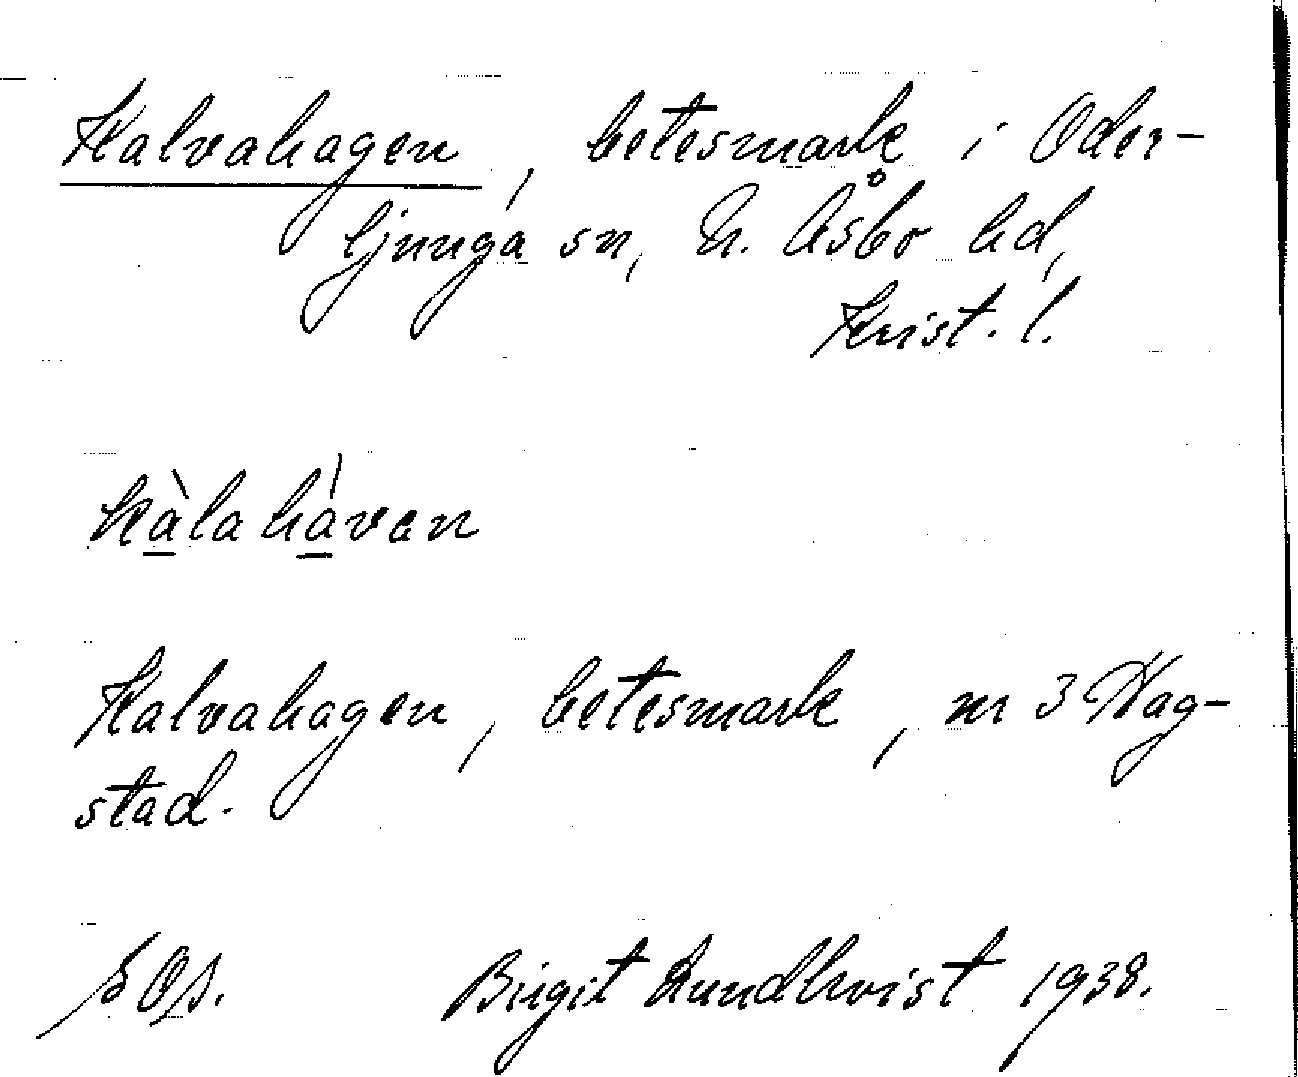 Kalvahagen, betesmark i Oder-
ljunga sn, N. Åsbo hd,
Krist. l.
kàlahávan
Kalvahagen, betesmark, nr 3 Hag-
stad.
Birgit Lundkvist 1938.